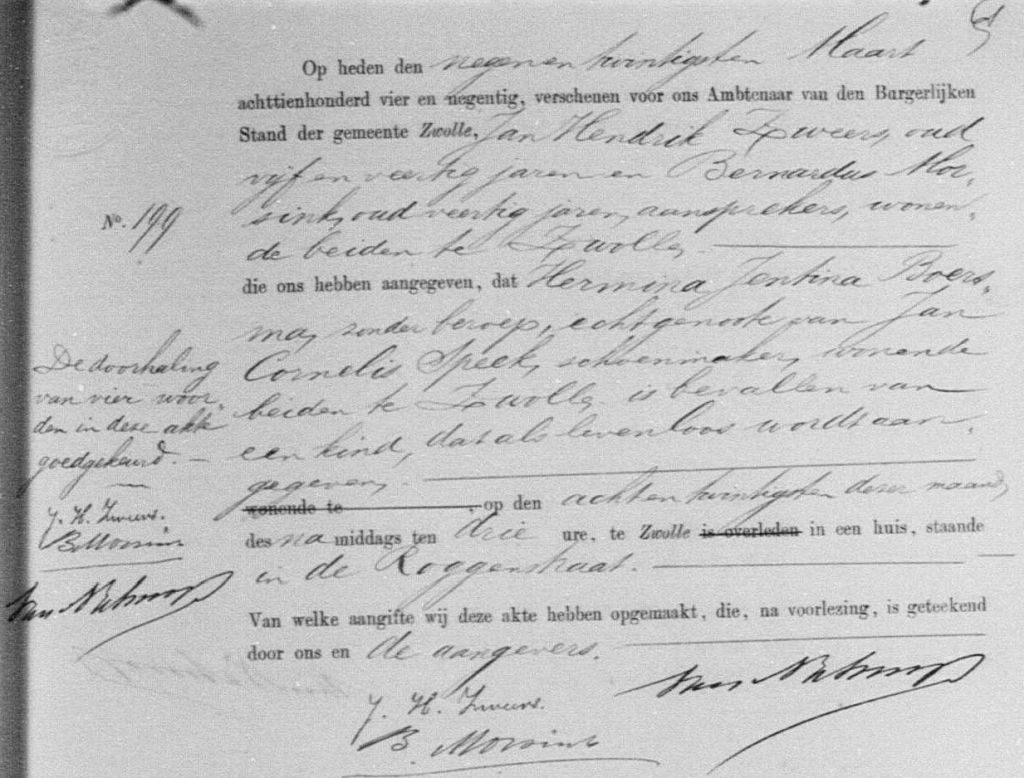 Op heden den negen en twintigsten Maart
achttienhonderd vier en negentig, verschenen voor ons Ambtenaar van den Burgerlijken
Stand der gemeente Zwolle, Jan Hendrik Zweers, oud
vijf en veertig jaren en Bernardus Mor-
sink, oud veertig jaren, aansprekers, wonen-
de beiden te Zwolle,
No. 199
die ons hebben aangegeven, dat Hermina Jentina Boers-
ma, zonder beroep, echtgenoote van Jan
Cornelis Speek, schoenmaker, wonende
beiden te Zwolle is bevallen van
een kind, dat als levenloos wordt aan-
gegeven,
wonende te , op den acht en twintigsten dezer maand,
des na middags ten drie ure, te Zwolle is overleden in een huis, staande
in de Roggenstraat.
Van welke aangifte wij deze akte hebben opgemaakt, die, na voorlezing, is geteekend
door ons en de aangevers.
J. H. Zweers.
B. Morsink
De doorhaling
van vier woor-
den in deze akte
goedgekeurd. —
J. H. Zweers.
B. Morsink